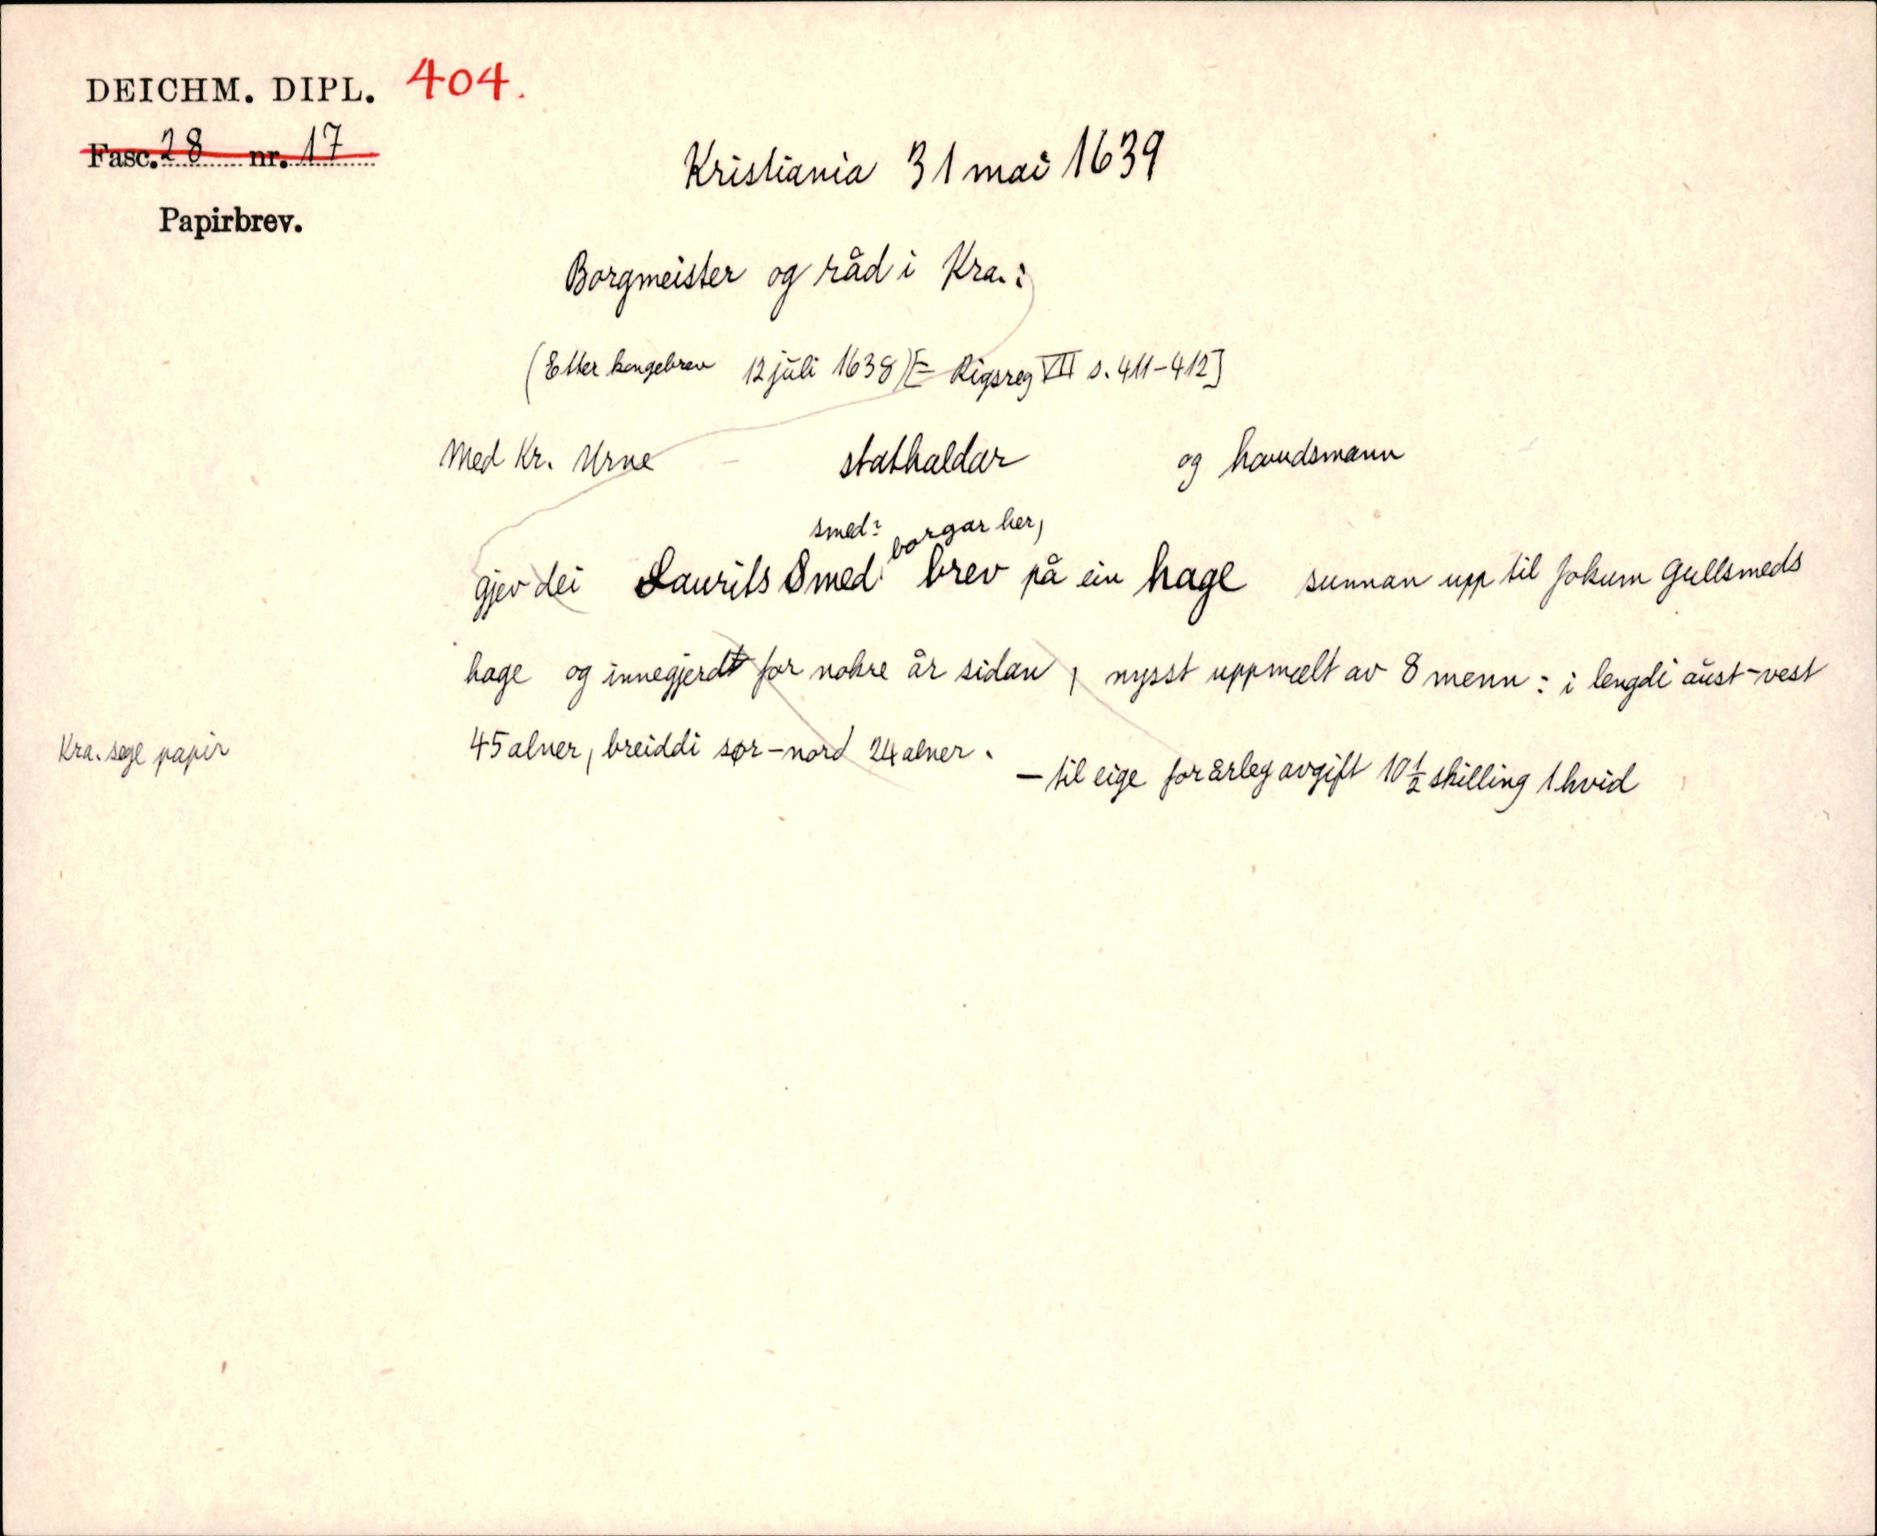 DEICHM. DIPL. 404.
Fasc. 28 nr. 17
Papirbrev.
Kristiania 31 mai 1639
Borgmeister og råd i Kra.:
(Etter kongebrev 12 juli 1638) [= Rigsreg VII s. 411-412]
Med Kr. Urne - stathaldar og haudsmann
smed? borgar her,
gjev dei Laurits Smed brev på ein hage sunnan upp til Jokum Gullsmeds
hage og innegjerdt for nokre år sidan, nysst uppmælt av 8 menn: i lengdi aust-vest
45 alner, breiddi sør-nord 24 alner.
- til eige for årleg avgift 10 1/2 skilling 1 hvid
Kra. segl papir